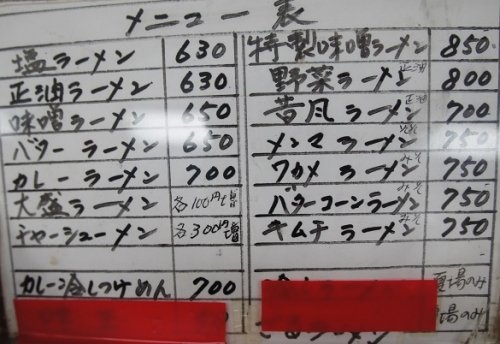 メニュー表
塩ラーメン 630
正油ラーメン 630
味噌ラーメン 650
バターラーメン 650
カレーラーメン 700
大盛ラーメン 各100円増
チャーシューメン 各300円増
カレー冷しつけめん 700
特製味噌ラーメン 850
野菜ラーメン 正油 800
昔風ラーメン 正油 700
メンマラーメン みそ 750
ワカメラーメン みそ 750
バターコーンラーメン みそ 750
キムチラーメン みそ 750
夏場のみ
場のみ